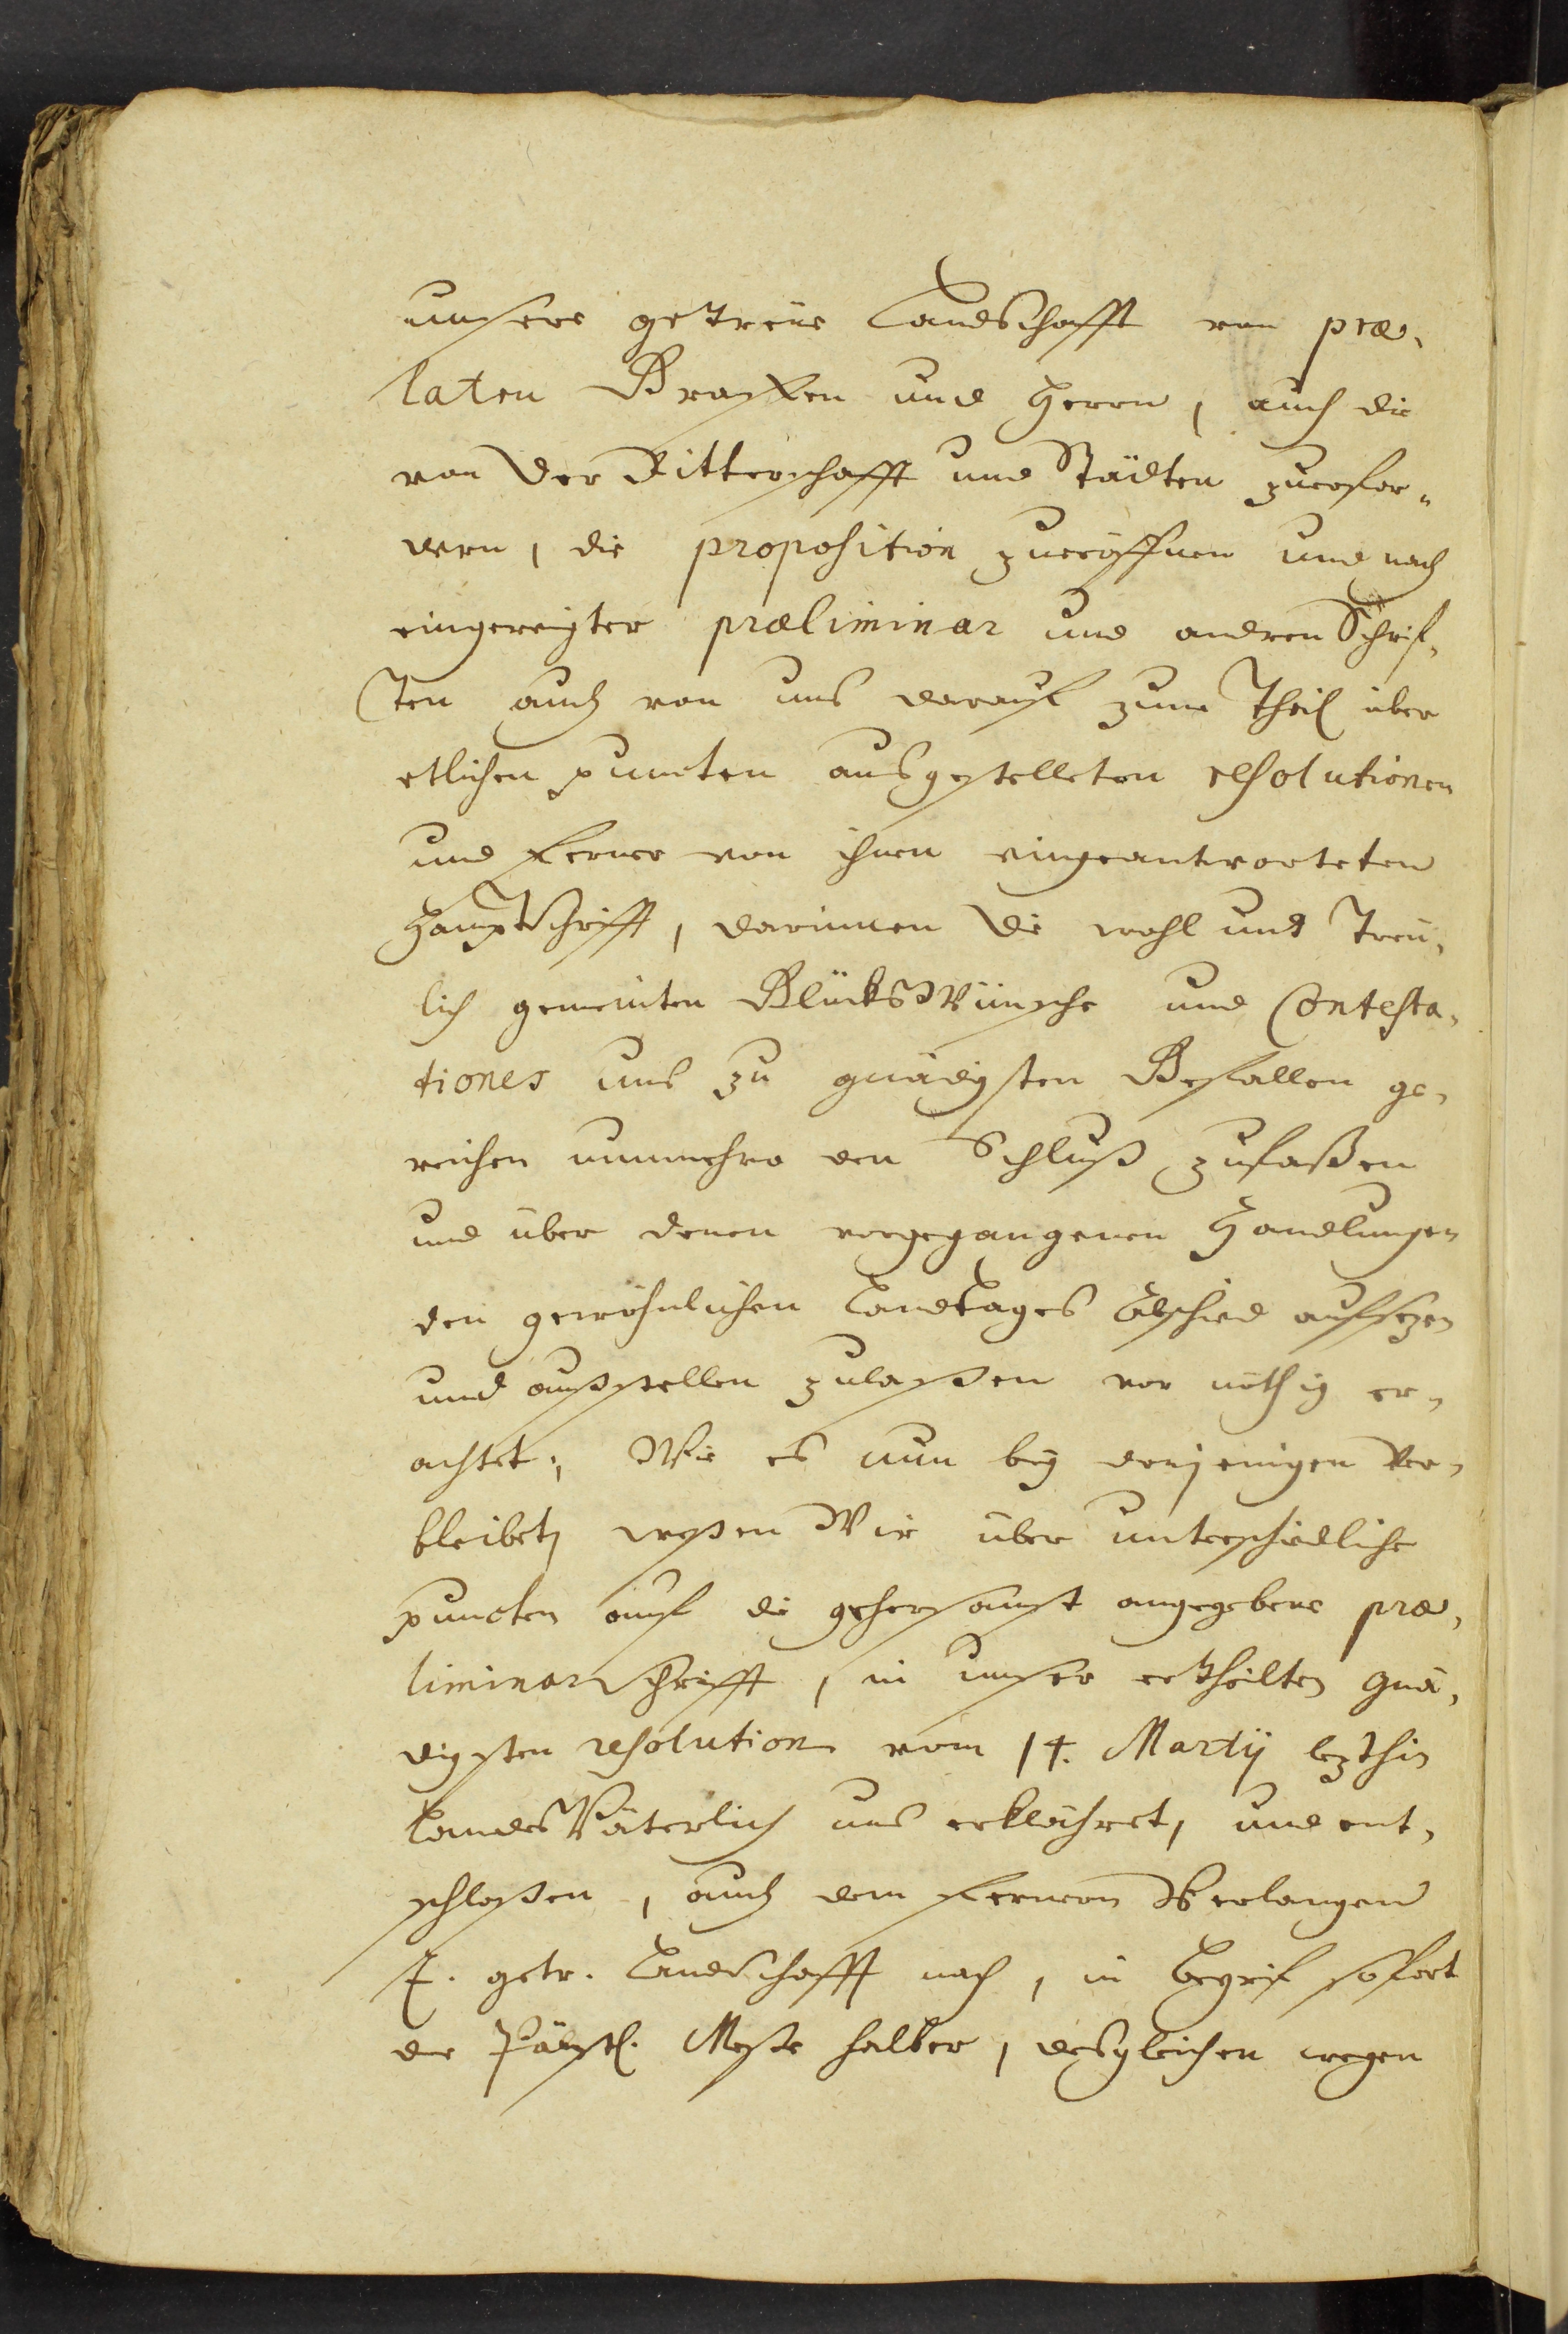 unsere getreüe Landschafft von præ-
laten Graffen und Herrn, auch die
von der Ritterschafft und Städten zuerfor-
dern, die proposition zueröffnen und nach
eingereichter præliminar und andren Schrif-
ten auch von uns darauf zum Theil über
etlichen puncten ausgestelleten resolutionen
und ferner von ihnen eingeantworteten
Hauptschrifft, darinnen die wohl und treü-
lich gemeinten GlücksWünsche und Contesta-
tiones uns zu gnädigsten Gefallen ge-
reichen nunmehro den Schluß zufaßen
und über denen vorgegangenen Handlungen
den gewöhnlichen Landtages Abschied aufsezen
und außstellen zulaßen vor nöthig er-
achtet; Wie es nun bey denjenigen ver-
bleibet, weßen Wir über unterschiedliche
puncten auf die gehorsamst angegebene præ-
liminarschrifft, in unser ertheilten gnä-
digsten resolution vom 14. Martÿ lezthin
LandesVäterlich uns erklähret, und ent-
schloßen, auch dem fernern Verlangen
E. getr. Landschafft nach, in Begrif sofort
der Päbstl. Messe halber, desgleichen wegen